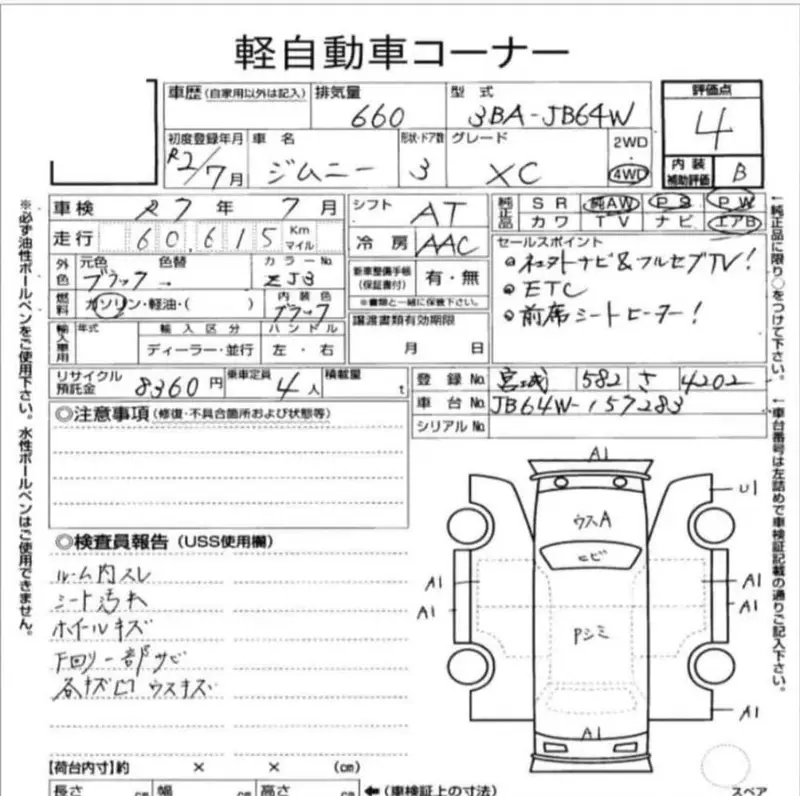 軽自動車コーナー
車歴(自家用以外は記入)
排気量
660
型式
3BA-JB64W
評価点
4
初度登録年月
R2/7月
車名
ジムニー
形状・ドア数
3
グレード
XC
2WD
4WD
内装補助評価
B
車検 R7年 7月
シフト
AT
純正品
SR 純AW PS PW
カワ TV ナビ エアB
走行 60,615 Km マイル
冷房
AAC
セールスポイント
外色
元色 色替
ブラック
カラーNo.
ZJ3
新車整備手帳(保証書付)
有・無
※書類と一緒に保管下さい。
・ETC
・前席シートヒーター!
燃料
ガソリン・軽油・( )
内装色
ブラック
譲渡書類有効期限
月 日
輸入車用
年式
輸入区分
ディーラー・並行
ハンドル
左・右
リサイクル預託金
8360円
乗車定員
4人
積載量
t
登録No. 宮城 582 さ 4202
車台No. JB64W-157283
シリアルNo.
◎注意事項(修復・不具合箇所および状態等)
◎検査員報告(USS使用欄)
ルーム内スレ
シート汚れ
ホイールキズ
下回り一部サビ
各キズ凹 ウスキズ
A1
U1
ウスA
ヒビ
A1
A1
A1
A1
Pシミ
A1
A1
スペア
【荷台内寸】約 × × (cm)
長さ cm 幅 cm 高さ cm
←(車検証上の寸法)
※必ず油性ボールペンをご使用下さい。水性ボールペンはご使用できません。
↑純正品に限り○をつけて下さい。
↑車台番号は左詰めで車検証記載の通りご記入下さい。